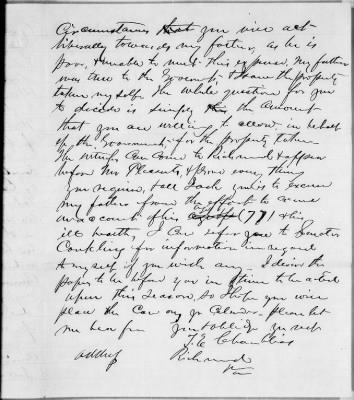 Circumstances that you will act
liberally towards my father, as he is
poor, & unable to meet this expense. My father
was true to the Governmt, & I saw the property
taken my self. The whole question for you
to decide is simply the amount
that you are willing to allow, in behalf
of the Government, for the property taken.
The witness can come to Richmond & appear
before Mr Pleasants, & prove every thing
you require, & all I ask is to excuse
my father from the effort to come
on account of his age (77) & his
ill health, I can refer you to Senator
Conkling for information in regard
to myself if you wish any. I desire the
papers to be before you in time to be acted
upon this season, so I hope you will
place the case on yr Calendar. Please let
me hear from you & oblige yrs resp
J. R. Chambliss
address Richmond
Va